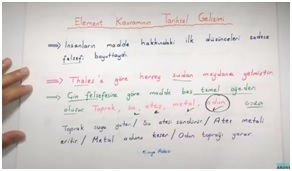 Element Kavramının Tarihsel Gelişimi
⇒ İnsanların madde hakkındaki ilk düşünceleri sadece
felsefi boyuttaydı.
⇒ Thales'e göre herşey sudan meydana gelmiştir.
⇒ Çin felsefesine göre madde beş temel öğeden
oluşur. Toprak, su, ateş, metal, odun
Toprak suyu yutar / Su ateşi söndürür / Ateş metali
eritir / Metal odunu keser / Odun toprağı yarar.